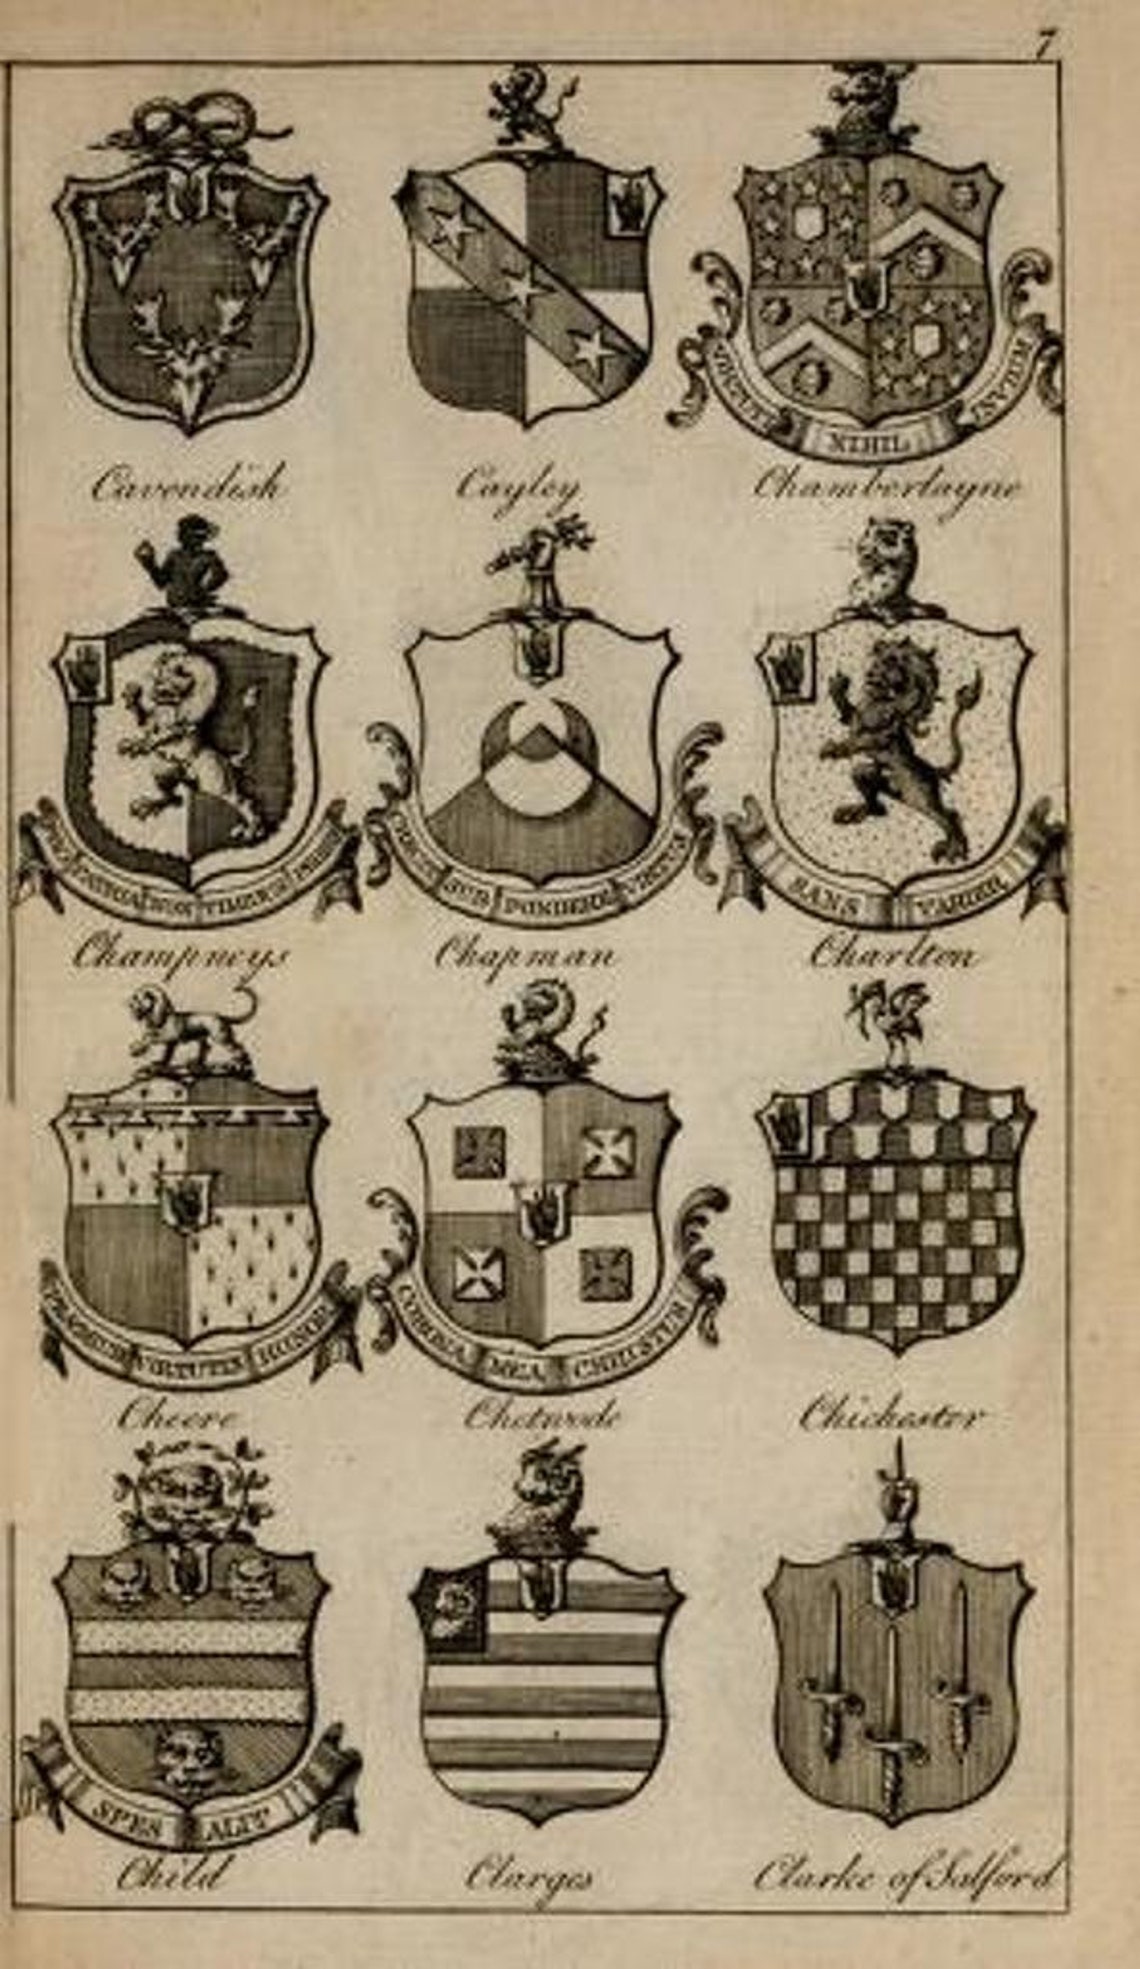 7
Cavendish
Cayley
VIRTUTI NIHIL INVIUM
Chamberlayne
PRO PATRIA NON TIMIDUS PERIRE
Champneys
CRESCIT SUB PONDERE VIRTUS
Chapman
SANS VARIER
Charlton
PRÆMIUM VIRTUTIS HONOR
Cheere
CORONA MEA CHRISTUS
Chetwode
Chichester
SPES ALIT
Child
Clarges
Clarke of Salford